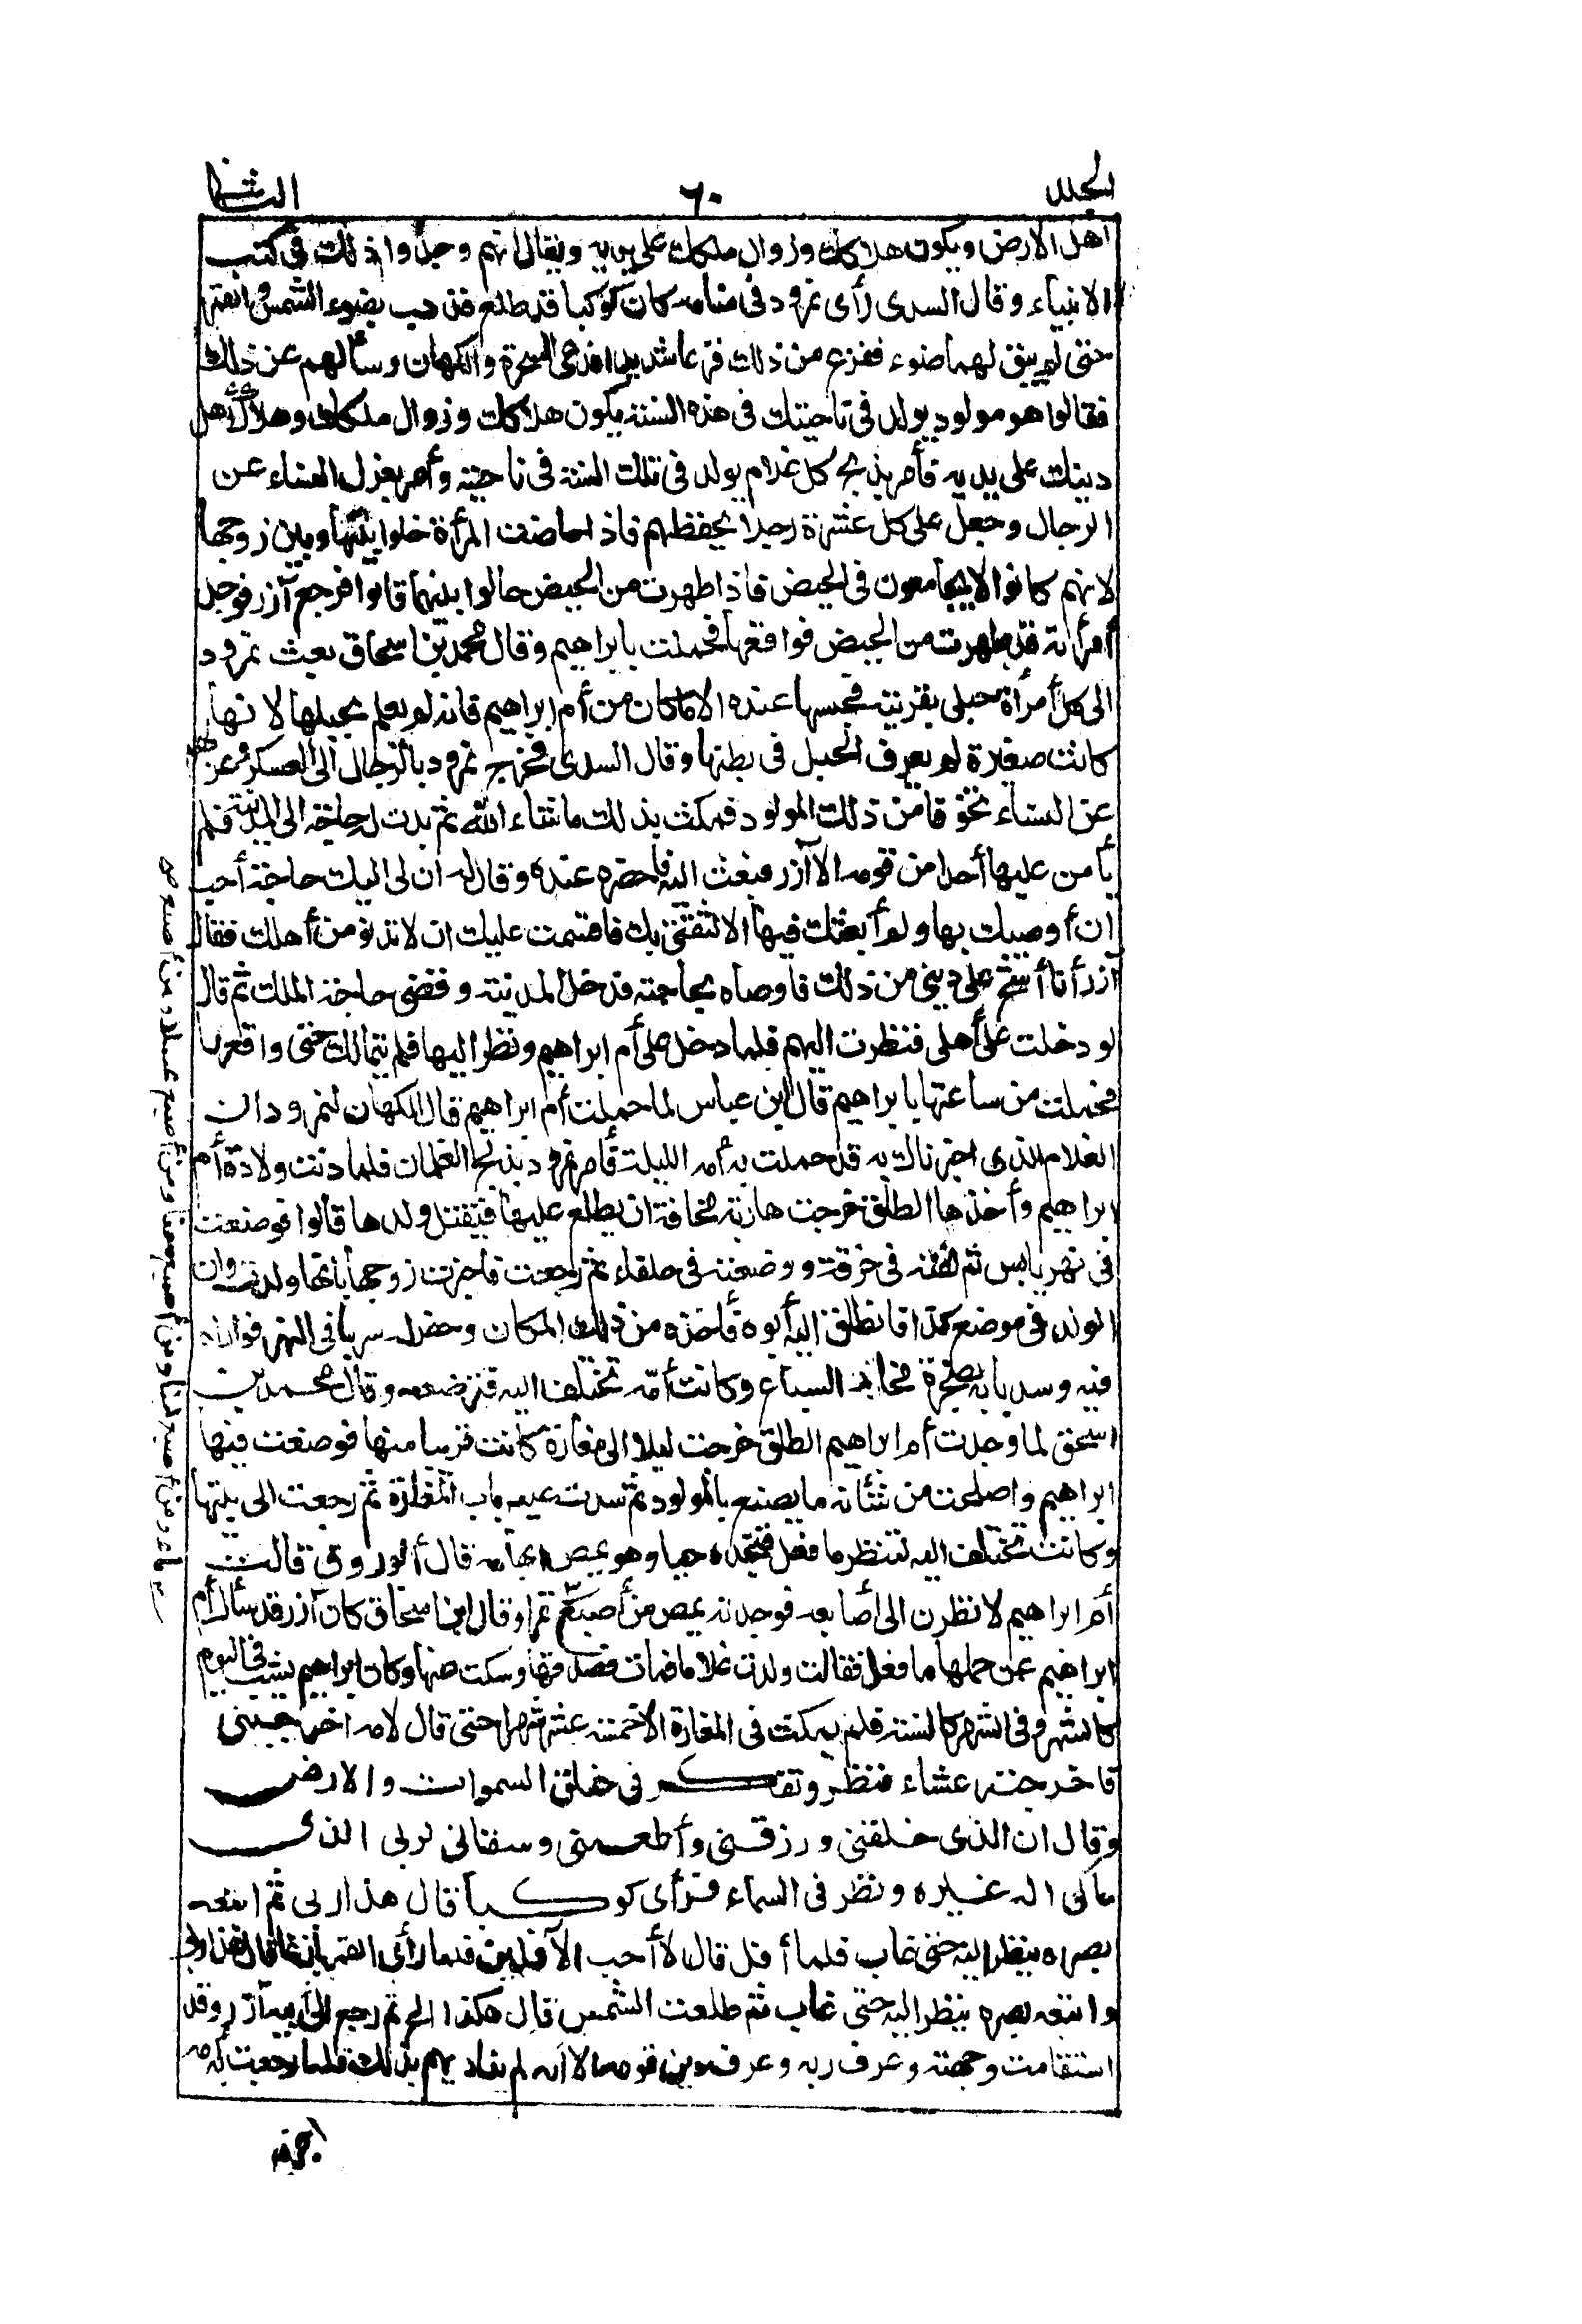 الجلد ٦٠ الثانى
اهل الارض ويكون هلاكك وزوال ملكك على يديه ويقال انهم وجدوا ذلك فى كتب
الانبياء وقال السدى رأى نمرود فى منامه كان كوكبا قد طلع فذهب بضوء الشمس والقمر
حتى لم يبق لهما ضوء ففزع من ذلك فزعا شديدا فدعى السحرة والكهان وسألهم عن ذلك
فقالوا هو مولود يولد فى ناحيتك فى هذه السنة يكون هلاكك وزوال ملكك وهلاك أهل
دينك على يديه فأمر بذبح كل غلام يولد فى تلك السنة فى ناحيته وأمر بعزل النساء عن
الرجال وجعل على كل عشرة رجلا يحفظهم فاذا حاضت المرأة خلوا بينها وبين زوجها
لانهم كانوا لا يجامعون فى الحيض فاذا طهرت من الحيض حالوا بينهما قالوا فرجع آزر فوجد
أمرأته قد طهرت من الحيض فواقعها فحملت بابراهيم وقال محمد بن اسحاق بعث نمرود
الى كل أمرأة حبلى بقريته فحبسها عنده الا ماكان من أم ابراهيم فانه لم يعلم بحبلها لانها
كانت صغيرة لم يعرف الحبل فى بطنها وقال السدى فخرج نمرود بالرجال الى العسكر وعزلهم
عن النساء تخوفا من ذلك المولود فمكث بذلك ماشاء الله ثم بدت له حاجة الى المدينة فلم
يأمن عليها أحدا من قومه الا آزر فبعث اليه فاحضره عنده وقال له ان لى اليك حاجة أحب
ان أوصيك بها ولم أبعثك فيها الا لثقتى بك فاقسمت عليك ان لا تدنو من أهلك فقال
آزر أنا أشح على دينى من ذلك فاوصاه بحاجته فدخل المدينة وقضى حاجة الملك ثم قال
لو دخلت على أهلى فنظرت اليهم فلما دخل على أم ابراهيم ونظر اليها فلم يتمالك حتى واقعها
فحملت من ساعتها بابراهيم قال ابن عباس لما حملت أم ابراهيم قال الكهان لنمرود ان
الغلام الذى اخبرناك به قد حملت به أمه الليلة فأمر نمرود بذبح الغلمان فلما دنت ولادة أم
ابراهيم وأخذها الطلق خرجت هاربة مخافة ان يطلع عليها فيقتل ولدها قالوا فوضعته
فى نهر يابس ثم لفته فى خرقة ووضعته فى حلفاء ثم رجعت فاخبرت زوجها بانها ولدت وان
الولد فى موضع كذا فانطلق اليه أبوه فأخذه من ذلك المكان وحفر له سربا فى النهر فواراه
فيه وسد بابه بصخرة مخافة السباع وكانت أمّه تختلف اليه فترضعه وقال محمد بن
اسحق لما وجدت أم ابراهيم الطلق خرجت ليلا الى مغارة كانت قريبا منها فوضعت فيها
ابراهيم واصلحت من شأنه ما يصنع بالمولود ثم سدت عليه باب المغارة ثم رجعت الى بيتها
وكانت تختلف اليه لتنظر ما فعل فتجده حيا وهو يمص ابهامه قال أبو روق قالت
أم ابراهيم لانظرن الى أصابعه فوجدته يمص من أصبع تمرا وقال ابن اسحاق كان آزر قد سأل أم
ابراهيم عن حملها ما فعل فقالت ولدت غلاما فمات فصدقها وسكت عنها وكان ابراهيم يشب فى اليوم
كالشهر وفى الشهر كالسنة فلم يمكث فى المغارة الا خمسة عشر شهرا حتى قال لامه اخرجينى
فاخرجته عشاء فنظر وتفكر فى خلق السموات والارض
وقال ان الذى خلقنى ورزقنى وأطعمنى وسقانى لربى الذى
مالى اله غيره ونظر فى السماء فرأى كوكبا قال هذا ربى ثم اتبعه
بصره ينظر اليه حتى غاب فلما أفل قال لا أحب الآفلين فلما رأى القمر بازغا قال هذا ربى
واتبعه بصره ينظر اليه حتى غاب ثم طلعت الشمس قال هكذا الخ ثم رجع الى أبيه آزر وقد
استقامت وجهته وعرف ربه وعرف دين قومه الا انه لم يناديهم بذلك فلما رجعت به أمه
ماء ومن أصبع لبنا ومن أصبع سمنا ومن أصبع عسلا ومن أصبع
اخبرته